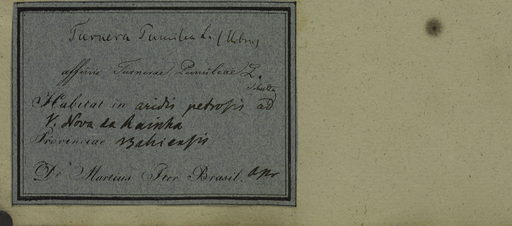 Turnera Pumilea L. (Urban)
affinis Turnerae Pumileae L.
Schultz
Habitat in aridis petrosis ad
V. Nova da Rainha
Provinciae Bahiensis
Dr Martius Iter Brasil.